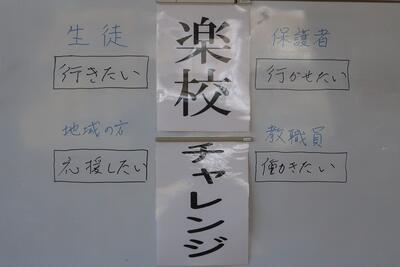 生徒
行きたい
地域の方
応援したい
楽校
チャレンジ
保護者
行かせたい
教職員
働きたい